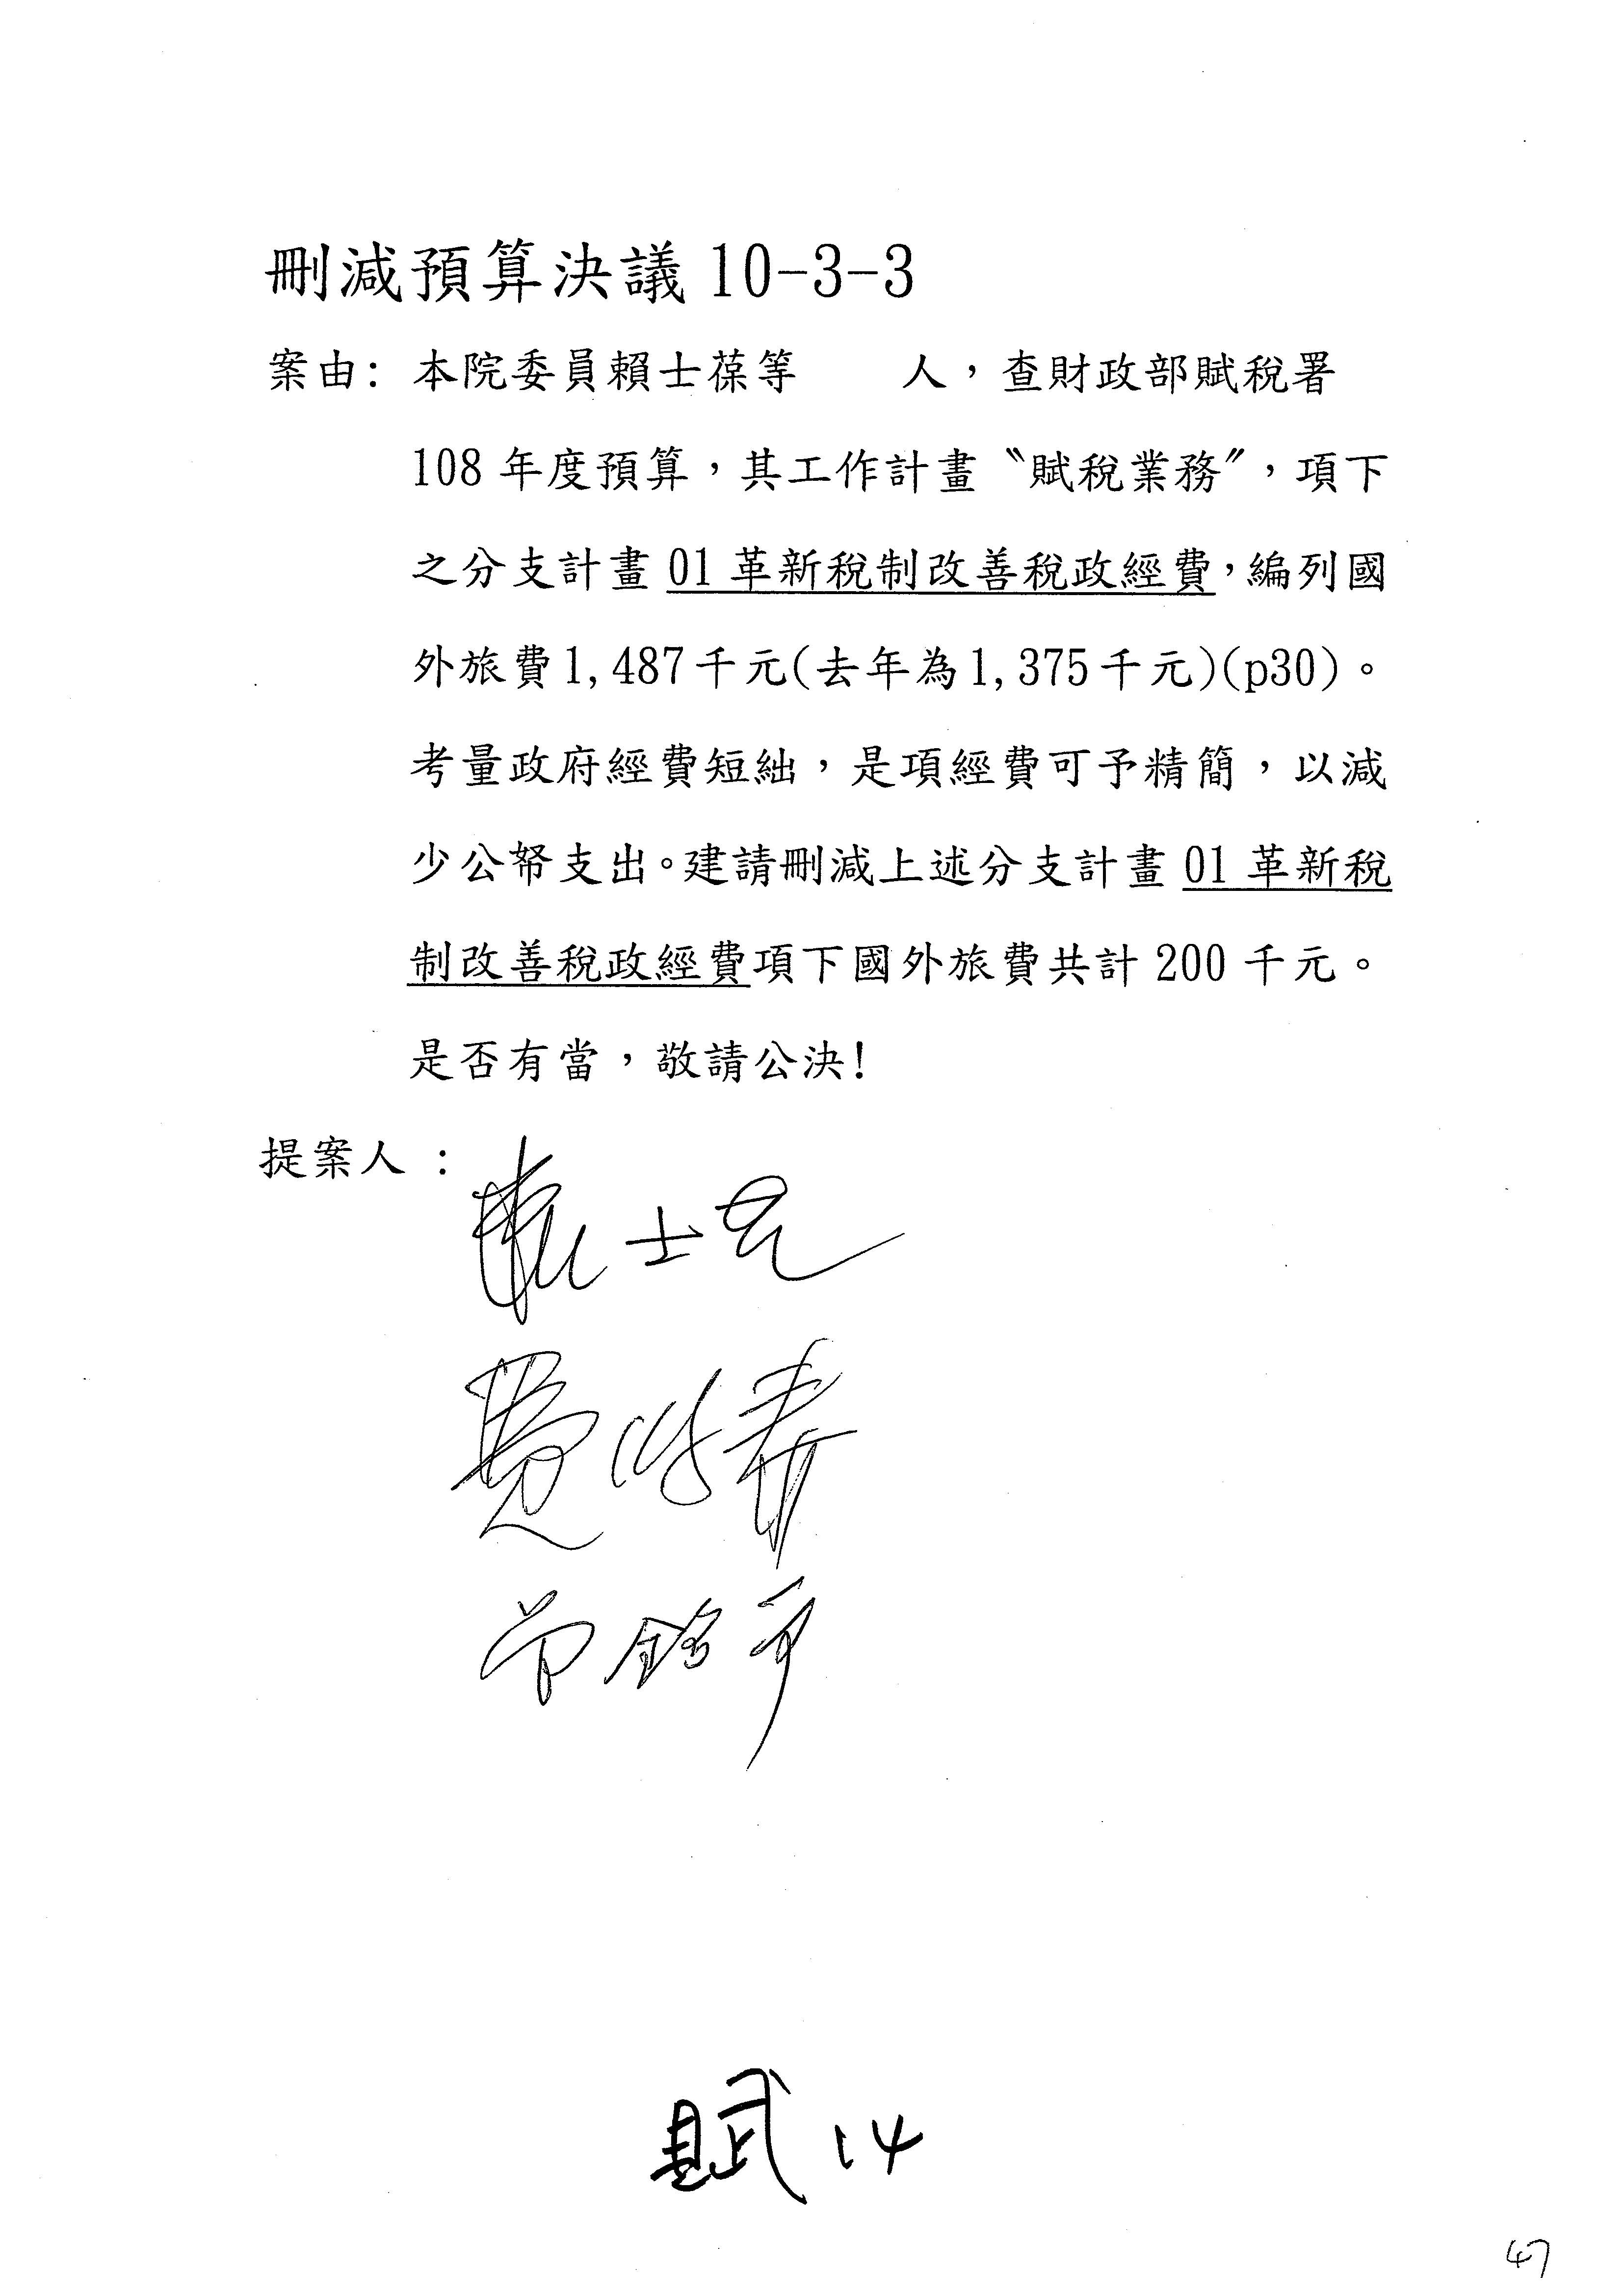 刪減預算決議 10-3-3
案由: 本院委員賴士葆等　　人，查財政部賦稅署
108 年度預算，其工作計畫〝賦稅業務〞，項下
之分支計畫 01 革新稅制改善稅政經費，編列國
外旅費 1,487 千元(去年為 1,375 千元)(p30)。
考量政府經費短絀，是項經費可予精簡，以減
少公帑支出。建請刪減上述分支計畫 01 革新稅
制改善稅政經費項下國外旅費共計 200 千元。
是否有當，敬請公決!
提案人 :
賴士葆
費鴻泰
曾銘宗
賦 14
47